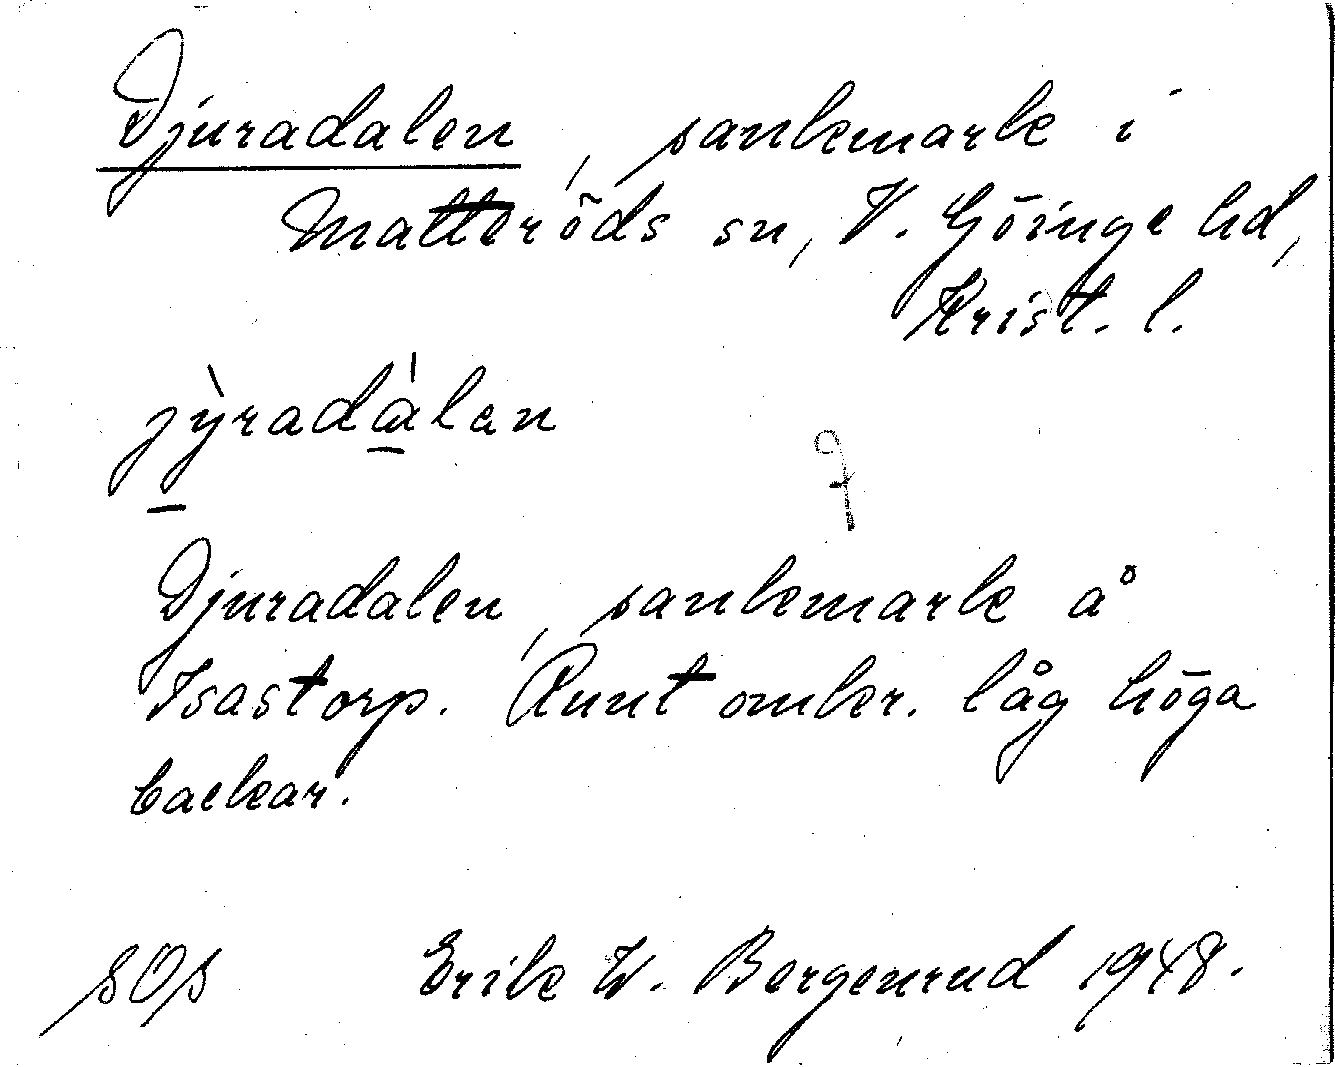 Djuradalen, sankmark i
Matteröds sn, V. Göinge hd,
Krist. l.
jỳradàlen
Djuradalen, sankmark å
Isastorp. Runt omkr. låg höga
backar.
SOS Erik W. Bergenrud 1948.